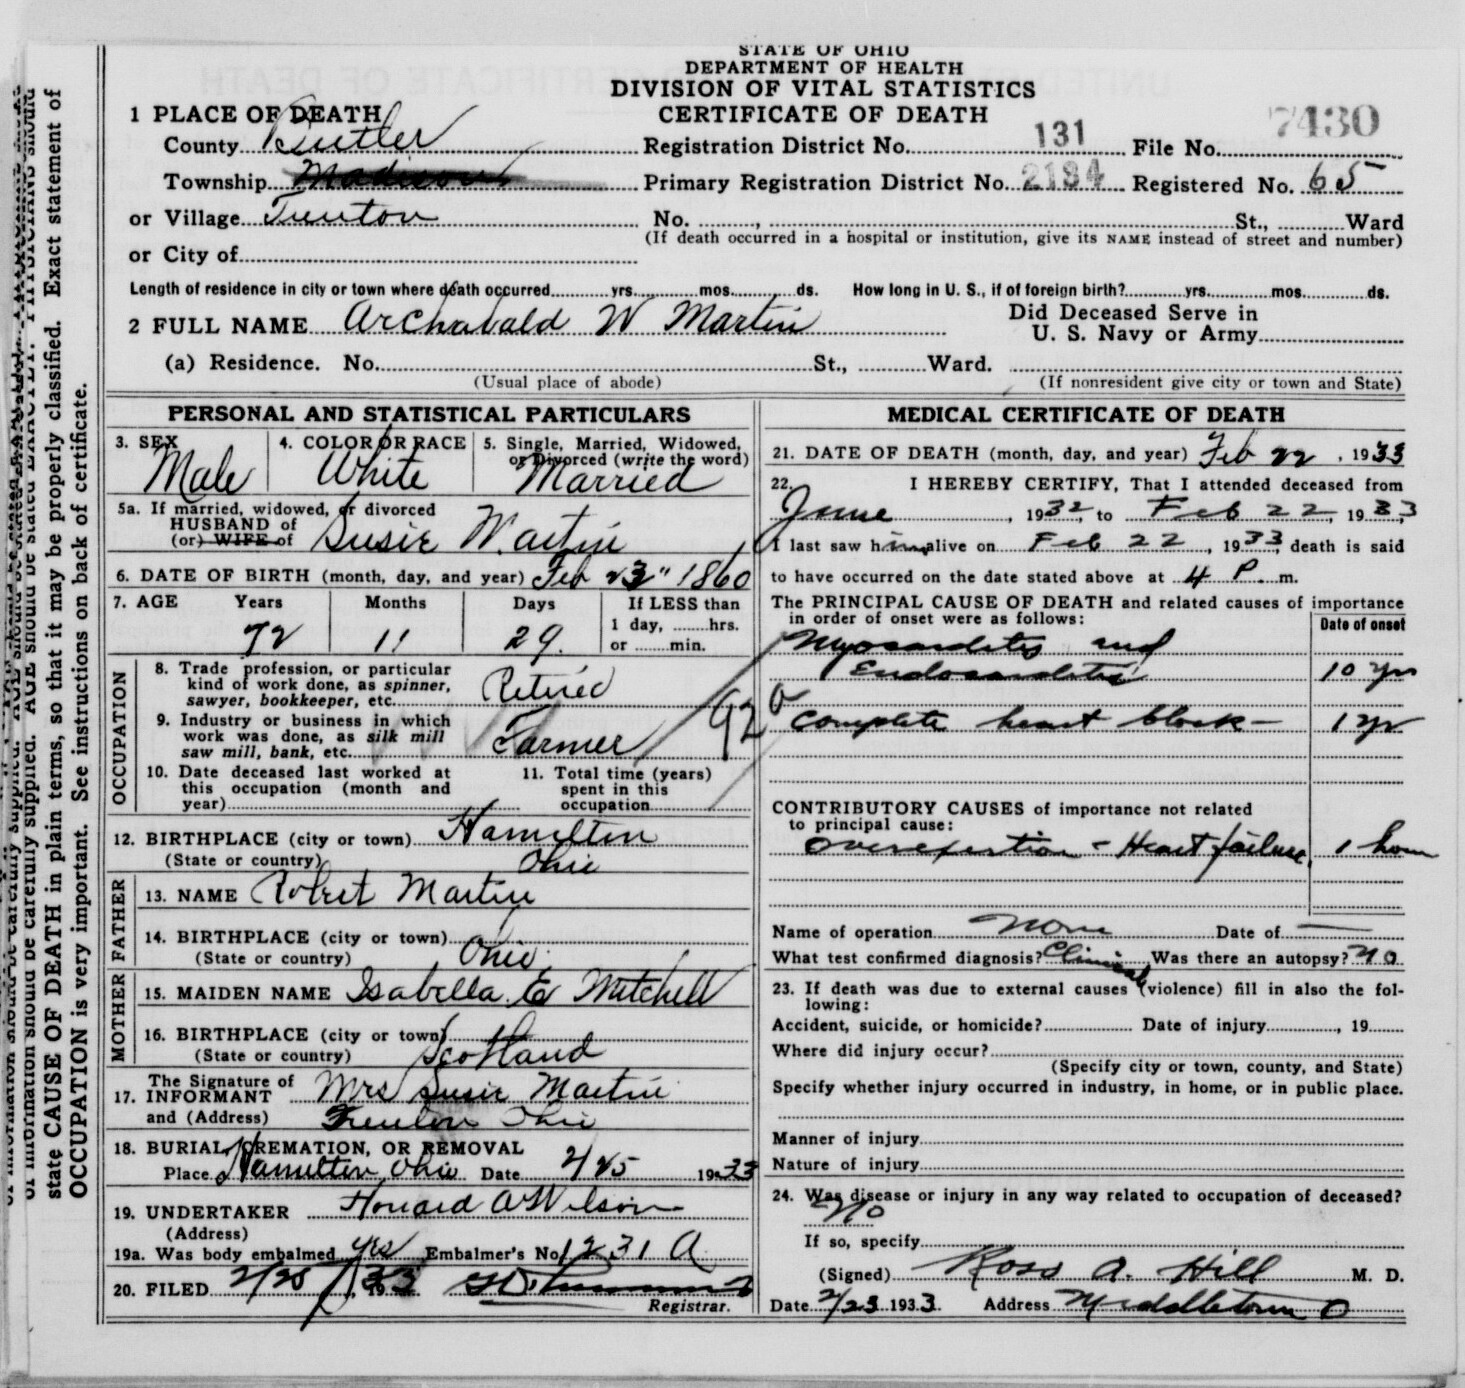 STATE OF OHIO
DEPARTMENT OF HEALTH
DIVISION OF VITAL STATISTICS
CERTIFICATE OF DEATH
1 PLACE OF DEATH
County Butler Registration District No. 131 File No. 7430
Township Madison Primary Registration District No. 2184 Registered No. 65
or Village Trenton No. , St., Ward
(If death occurred in a hospital or institution, give its NAME instead of street and number)
or City of
Length of residence in city or town where death occurred yrs. mos. ds. How long in U. S., if of foreign birth? yrs. mos. ds.
2 FULL NAME Archabald W Martin Did Deceased Serve in
U. S. Navy or Army
(a) Residence. No. St., Ward.
(Usual place of abode) (If nonresident give city or town and State)
PERSONAL AND STATISTICAL PARTICULARS
3. SEX 4. COLOR OR RACE 5. Single, Married, Widowed,
or Divorced (write the word)
Male White Married
5a. If married, widowed, or divorced
HUSBAND of
(or) WIFE of Susie Martin
6. DATE OF BIRTH (month, day, and year) Feb 23" 1860
7. AGE Years Months Days If LESS than
1 day, hrs.
72 11 29. or min.
OCCUPATION
8. Trade profession, or particular
kind of work done, as spinner,
sawyer, bookkeeper, etc. Retired
9. Industry or business in which
work was done, as silk mill
saw mill, bank, etc. Farmer
92
10. Date deceased last worked at
this occupation (month and
year)
11. Total time (years)
spent in this
occupation
12. BIRTHPLACE (city or town) Hamilton
(State or country) Ohio
FATHER
13. NAME Robert Martin
14. BIRTHPLACE (city or town)
(State or country) Ohio.
MOTHER
15. MAIDEN NAME Isabella E Mitchell
16. BIRTHPLACE (city or town)
(State or country) Scotland
17. The Signature of
INFORMANT Mrs Susie Martin
and (Address) Trenton Ohio
18. BURIAL, CREMATION, OR REMOVAL
Place Hamilton Ohio Date 2/25 1933
19. UNDERTAKER Howard A Wilson
(Address)
19a. Was body embalmed yes Embalmer's No. 1231 A
20. FILED 2/25, 1933
Registrar.
MEDICAL CERTIFICATE OF DEATH
21. DATE OF DEATH (month, day, and year) Feb 22, 1933
22. I HEREBY CERTIFY, That I attended deceased from
June, 1932, to Feb 22, 1933,
I last saw him alive on Feb 22, 1933, death is said
to have occurred on the date stated above at 4 P. m.
The PRINCIPAL CAUSE OF DEATH and related causes of importance
in order of onset were as follows: Date of onset
Myocarditis and
Endocarditis 10 yrs
Complete heart block- 1 yr
CONTRIBUTORY CAUSES of importance not related
to principal cause:
Overexertion - Heart failure, 1 hour
Name of operation None Date of —
What test confirmed diagnosis? Clinical Was there an autopsy? No
23. If death was due to external causes (violence) fill in also the fol-
lowing:
Accident, suicide, or homicide? Date of injury , 19
Where did injury occur?
(Specify city or town, county, and State)
Specify whether injury occurred in industry, in home, or in public place.
Manner of injury
Nature of injury
24. Was disease or injury in any way related to occupation of deceased?
No
If so, specify
(Signed) Ross A. Hill M. D.
Date 2/23 1933. Address Middletown O
state CAUSE OF DEATH in plain terms, so that it may be properly classified. Exact statement of
OCCUPATION is very important. See instructions on back of certificate.